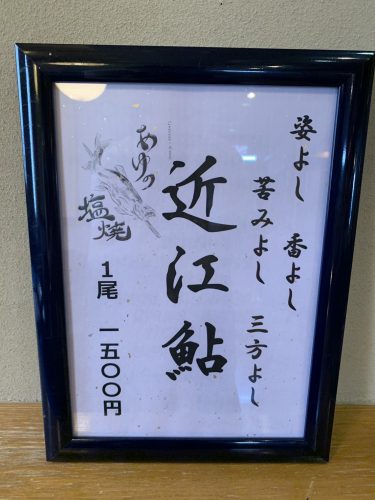 姿よし
香よし
苦みよし
三方よし
近江鮎
あゆの
塩焼
1尾 一五〇〇円